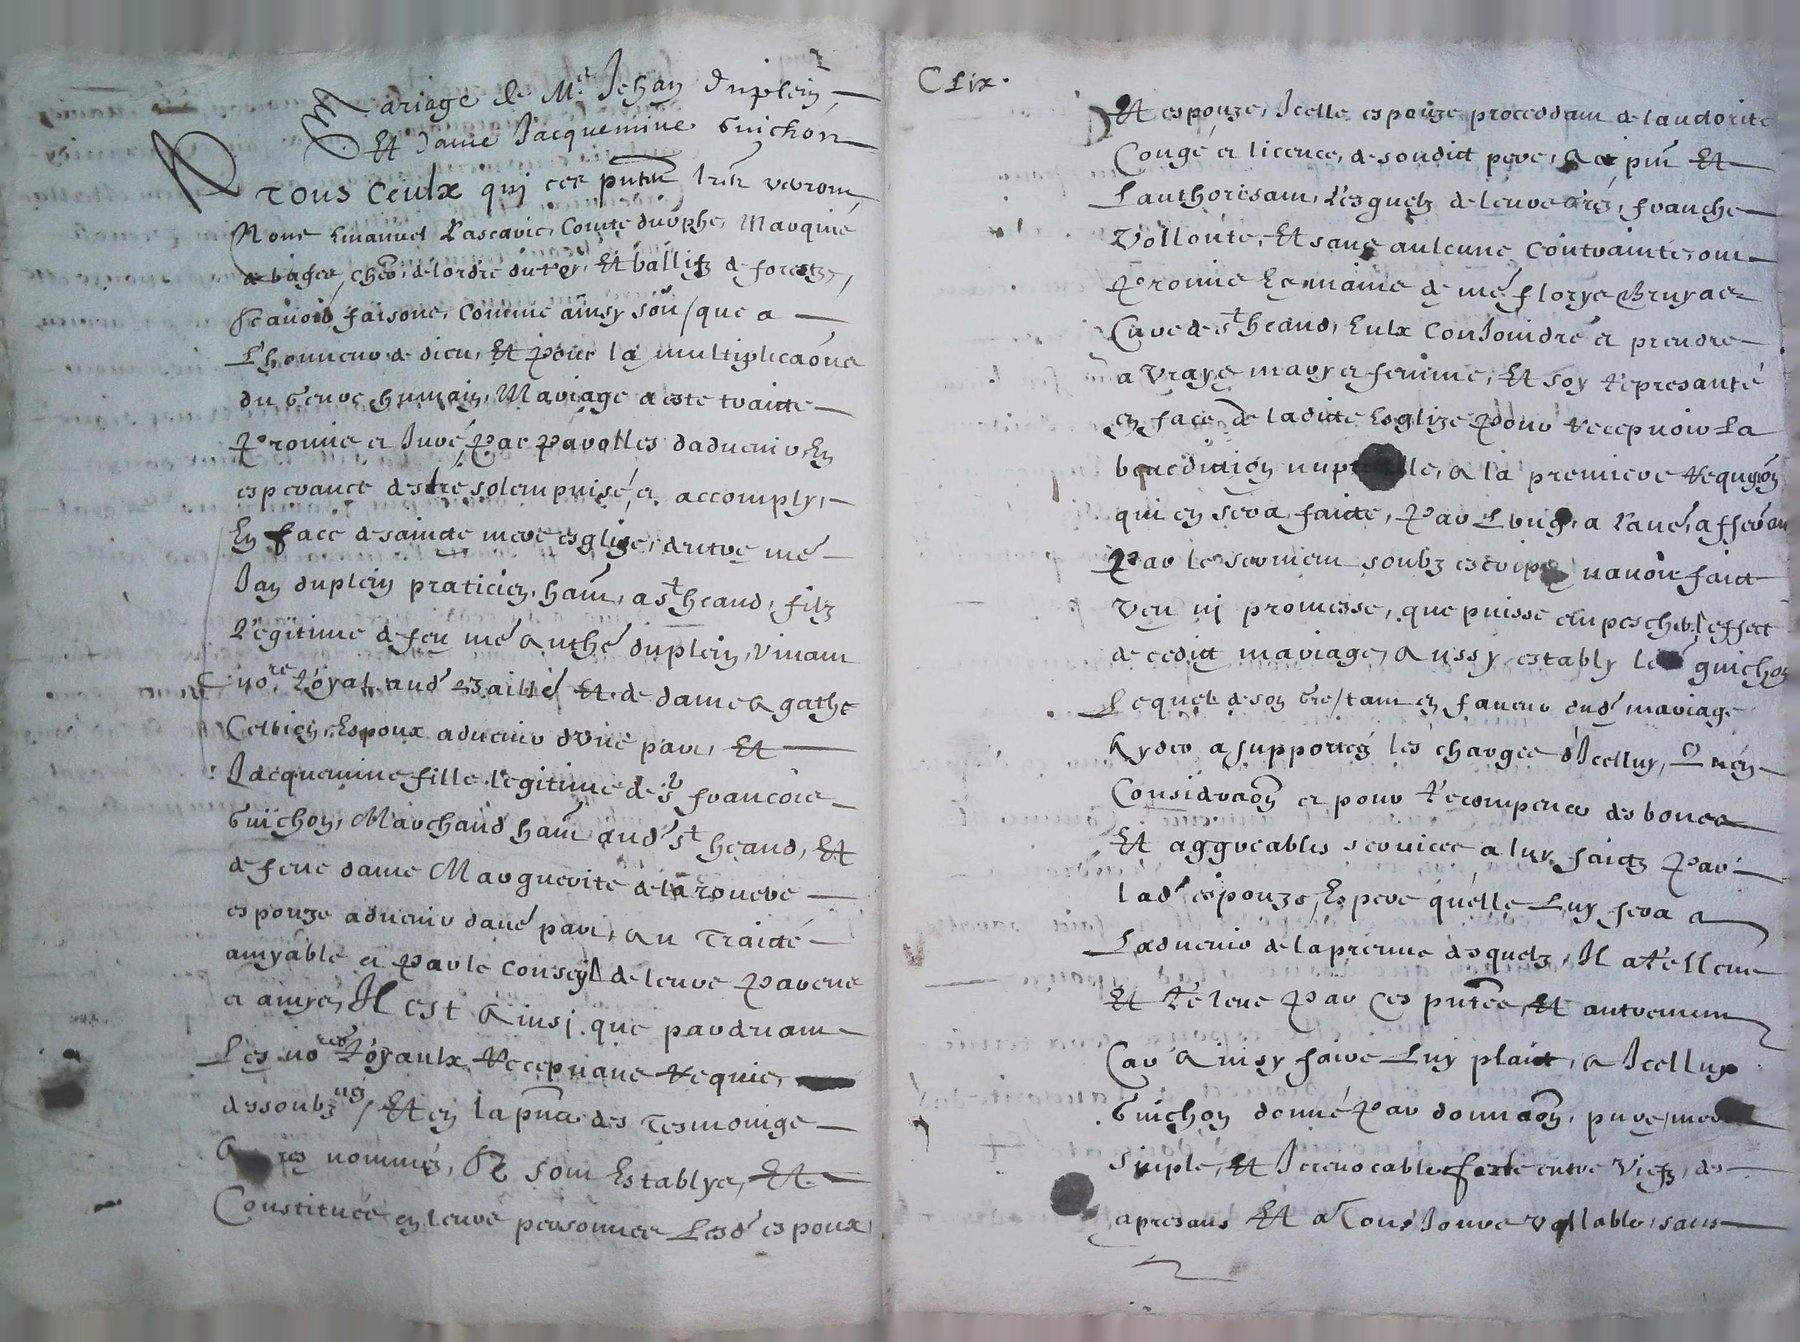 Mariage de Mr Jehan Duplein
Et Dame Jacquemine Guichon
A tous Ceulx qui ces pntes lres verront
Nous Emanuel Lascaris, Comte durphe, Marquis
de bagee, cher de lordre du roy, Et ballif de forestz,
Scavoir faisons, Comme ainsy soit que a
Lhonneur de dieu, Et pour la multiplicaon
du Genre humain, Mariage a este traicte
Promis et Juré, Par Parolles dadvenir En
esperance destre solempnisé, et accomply,
En face de saincte mere esglise, entre me
Jan duplein praticien, hant, a st heand, filz
Legitime de feu me Anthe duplein, vivant
nore Royal aud Et de dame Agathe
Espoux advenir dune part, Et
Jacquemine fille legitime de sr francois
Guichon, Marchand hant aud st heand, Et
de feue dame Marguerite de la roueve
espouze advenir dauė part, au Traicté
amyable et Par le conseyl de leurs Parens
et amys, Il est Ainsi que pardevant
Les nores Royaulx Recepvans Requis,
dessoubz Et en la pnce des Tesmoings
nommés, Se sont Establys, Et
Constitués en leurs personnes Lesd espoux
CLix.
Et espouze, Icelle espouze procedant de lauctorité
Congé et licence, de sondict pere, Et
Lauthorisant, Lesquelz de leurs grés, franche
Vollonté, Et sans aulcune Contrainte, ont
Promis Es mains de me florys Bruyas
Curé de st heand, Eulx Conjoindre et prendre
a vraye mary et femme, Et soy representé
en face de ladicte Esglize Pour recepvoir La
benediction nup lle, a la premiere requision
qui en sera faicte, Par Lung, a Laué, afferant
Par le serment soubz escript navoir faict
veu ni promesse, que puisse empescher leffect
de cedict mariage, Aussy estably led guichon
Lequel de son Gre tant en faveur dud mariage
Ayder a supporter les charges dIcelluy, Qu en
Considraon et pour recompence des bons
Et aggreables services a luy faictz Par
lad espouze, Espere quelle Luy fera a
Ladvenir de la preuve desquelz, Il a relleve
Et releve Par ces pntes, Et autrement
Car Ainsy faire Luy plait, a Icelluy
Guichon donné Par donnaon, pure, mere
simple, Et Irrevocable faicte entre vifz, des
apresans Et a Tousjours vallable, sans